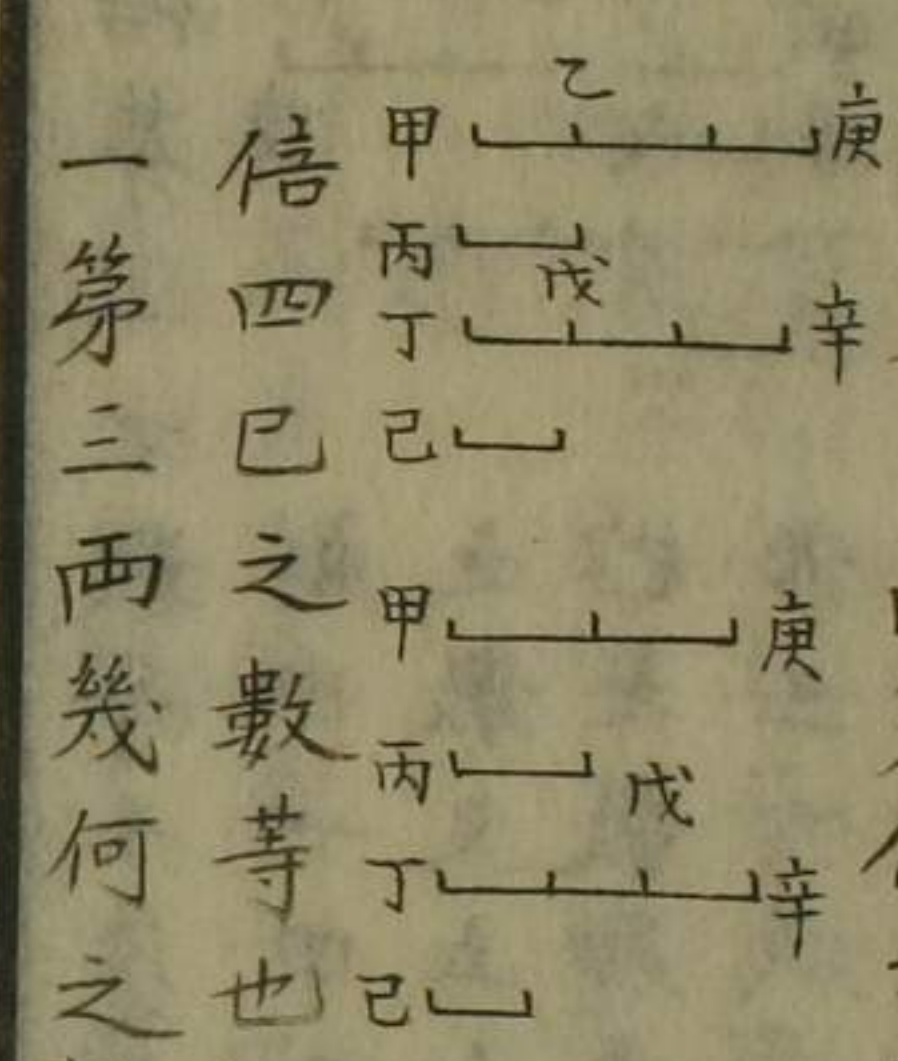 乙
甲 庚
丙
戊
丁 辛
己
甲 庚
丙
戊
丁 辛
己
倍四巳之數等也
一第三両幾何之